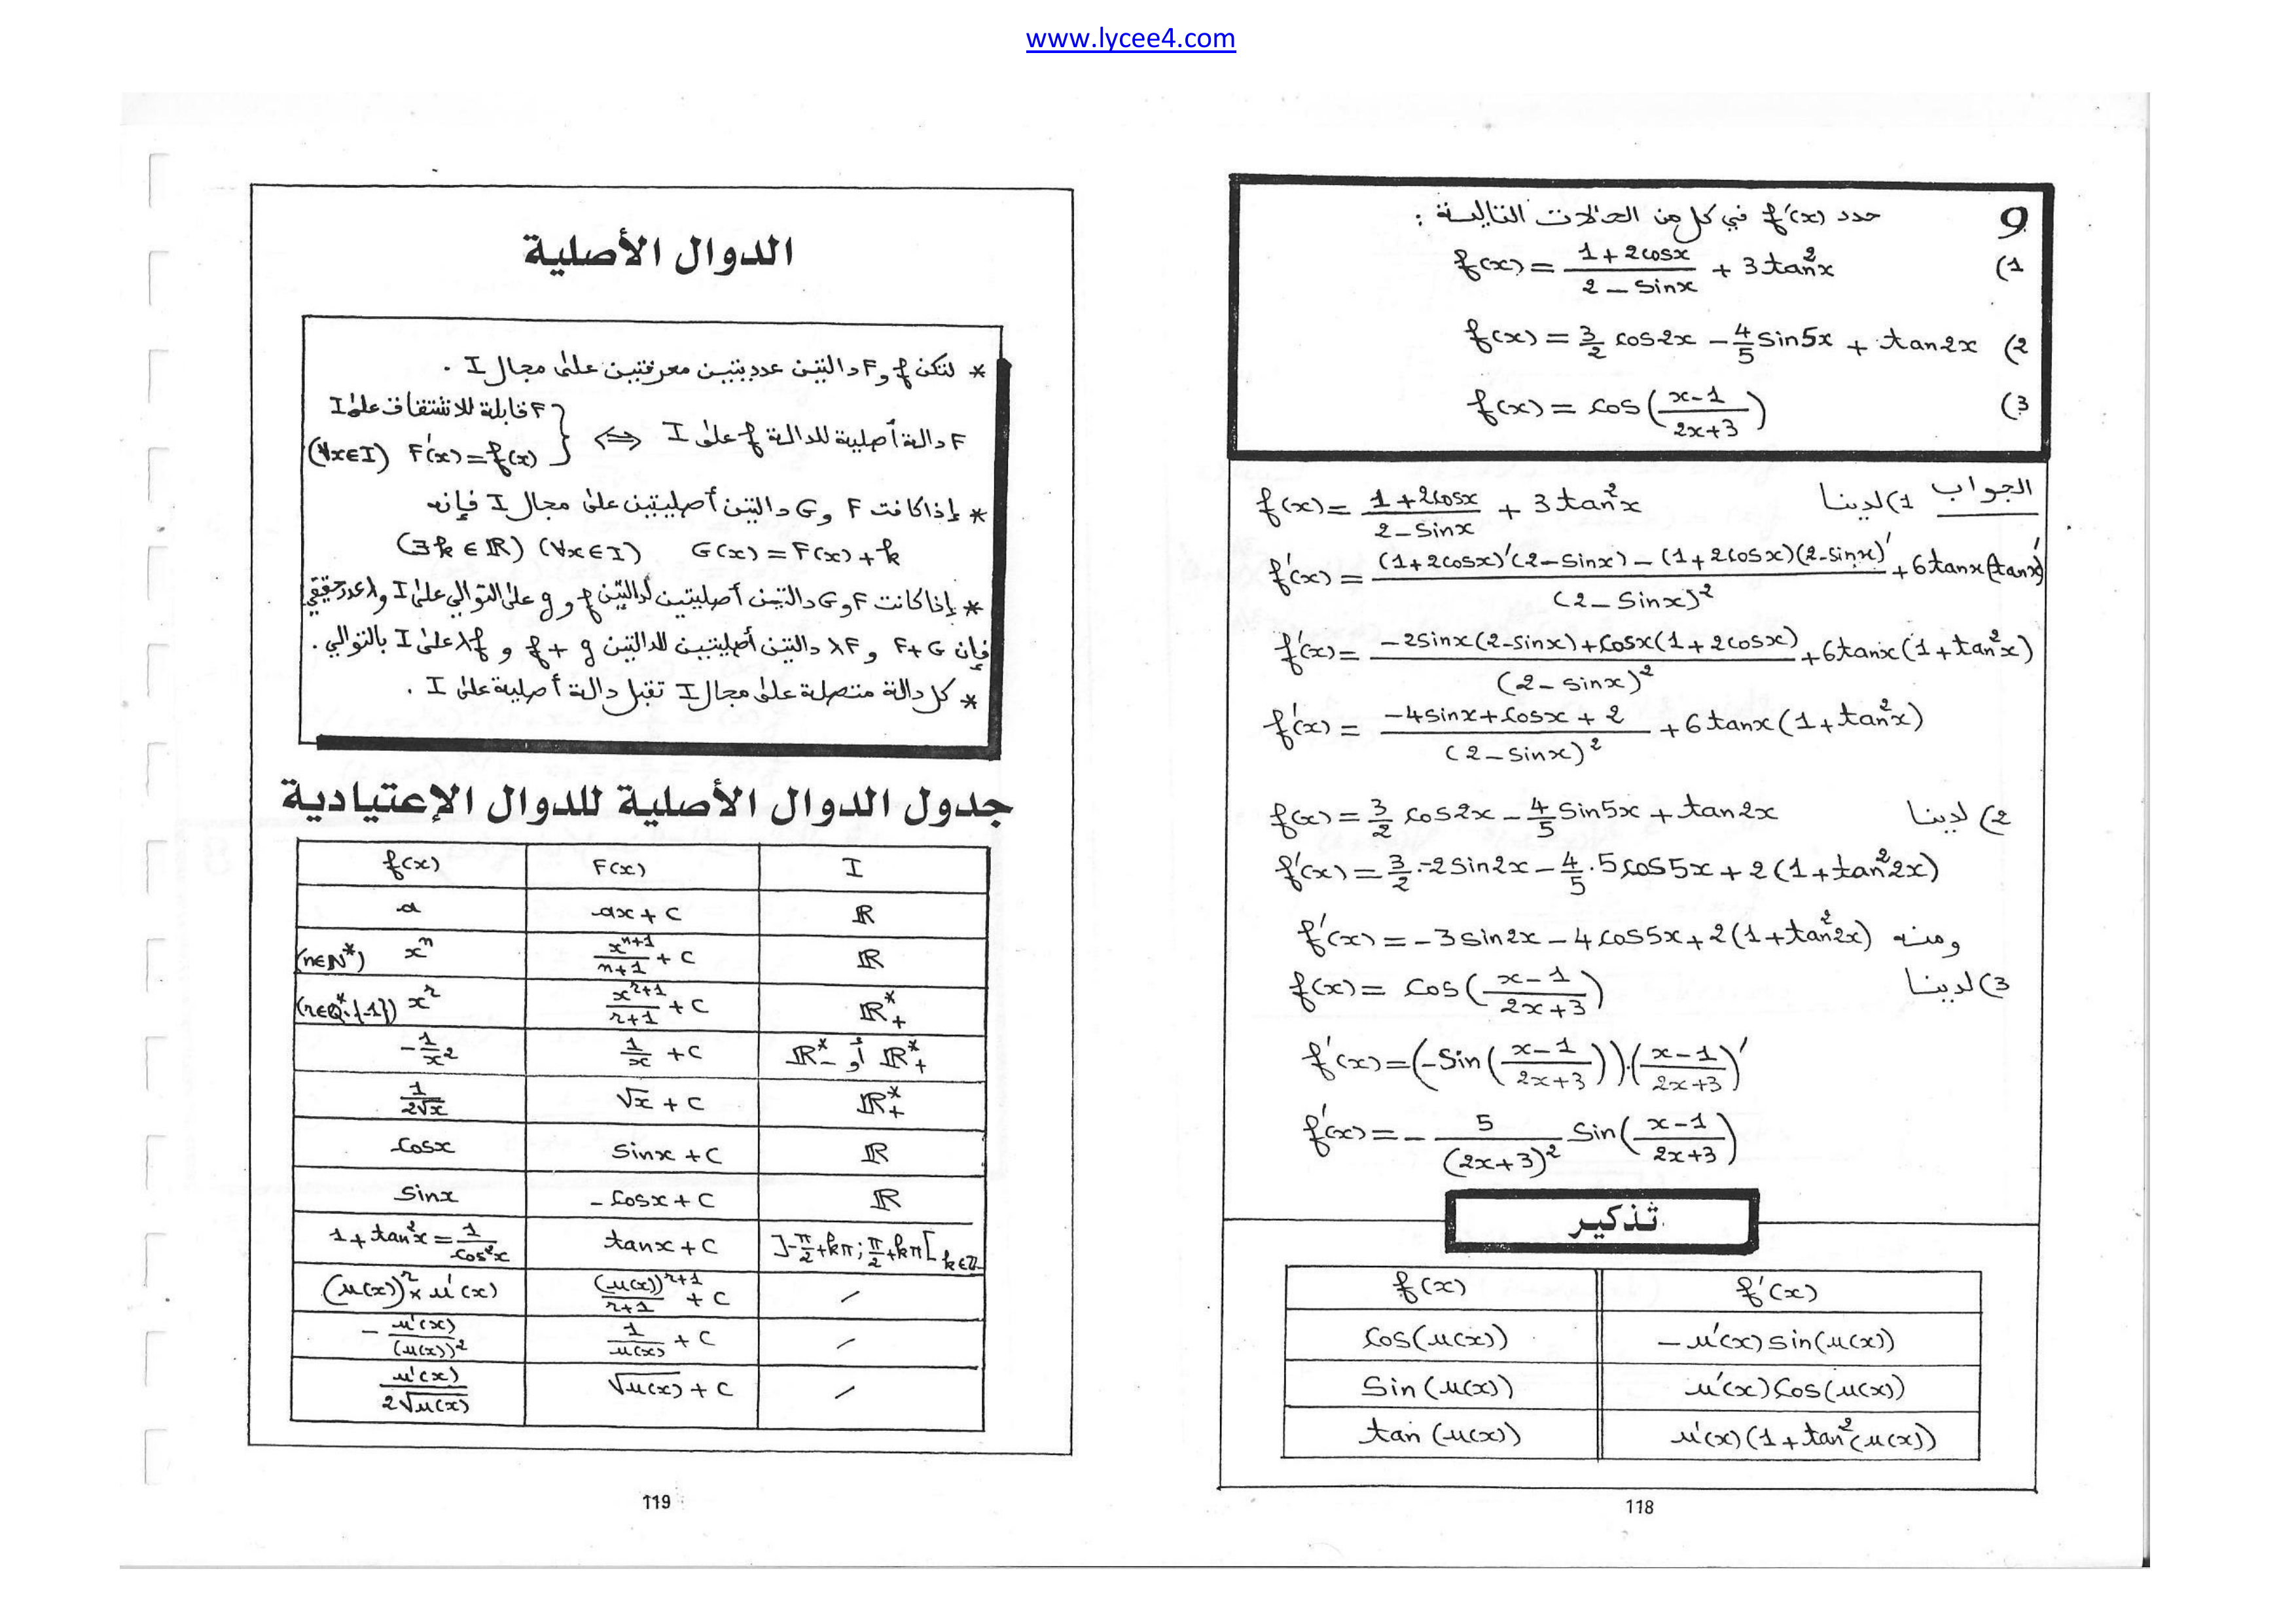 www.lycee4.com
9 حدد f'(x) في كل من الحالات التالية :
1) f(x) = (1+2cosx)/(2-sinx) + 3tan²x
2) f(x) = 3/2 cos2x - 4/5 sin5x + tan2x
3) f(x) = cos((x-1)/(2x+3))
الجواب 1) لدينا f(x) = (1+2cosx)/(2-sinx) + 3tan²x
f'(x) = ((1+2cosx)'(2-sinx) - (1+2cosx)(2-sinx)')/(2-sinx)² + 6tanx(tanx)'
f'(x) = (-2sinx(2-sinx)+cosx(1+2cosx))/(2-sinx)² + 6tanx(1+tan²x)
f'(x) = (-4sinx+cosx+2)/(2-sinx)² + 6tanx(1+tan²x)
2) لدينا f(x) = 3/2 cos2x - 4/5 sin5x + tan2x
f'(x) = 3/2 . -2sin2x - 4/5 . 5cos5x + 2(1+tan²2x)
ومنه f'(x) = -3sin2x - 4cos5x + 2(1+tan²2x)
3) لدينا f(x) = cos((x-1)/(2x+3))
f'(x) = (-sin((x-1)/(2x+3))).((x-1)/(2x+3))'
f'(x) = - 5/(2x+3)² sin((x-1)/(2x+3))
تذكير
f(x) | f'(x)
cos(u(x)) | -u'(x)sin(u(x))
sin(u(x)) | u'(x)cos(u(x))
tan(u(x)) | u'(x)(1+tan²(u(x))
118
الدوال الأصلية
* لتكن f و F دالتين عدديتين معرفتين على مجال I .
F دالة أصلية للدالة f على I ⇔ { F قابلة للاشتقاق على I
(∀x∈I) F'(x) = f(x)
* إذا كانت F و G دالتين أصليتين على مجال I فإنه
(∃k∈ℝ) (∀x∈I) G(x) = F(x) + k
* إذا كانت F و G دالتين أصليتين لدالتين f و g على التوالي على I و λ عدد حقيقي
فإن F+G و λF دالتين أصليتين للدالتين f+g و λf على I بالتوالي .
* كل دالة متصلة على مجال I تقبل دالة أصلية على I .
جدول الدوال الأصلية للدوال الإعتيادية
f(x) | F(x) | I
a | ax + c | ℝ
(n∈ℕ*) xⁿ | xⁿ⁺¹/(n+1) + c | ℝ
(r∈ℚ*\{-1}) x^r | x^(r+1)/(r+1) + c | ℝ*₊
-1/x² | 1/x + c | ℝ*₋ أو ℝ*₊
1/(2√x) | √x + c | ℝ*₊
cosx | sinx + c | ℝ
sinx | -cosx + c | ℝ
1+tan²x = 1/cos²x | tanx + c | ]-π/2+kπ ; π/2+kπ[ k∈ℤ
(u(x))^r × u'(x) | (u(x))^(r+1)/(r+1) + c | /
-u'(x)/(u(x))² | 1/u(x) + c | /
u'(x)/(2√u(x)) | √u(x) + c | /
119